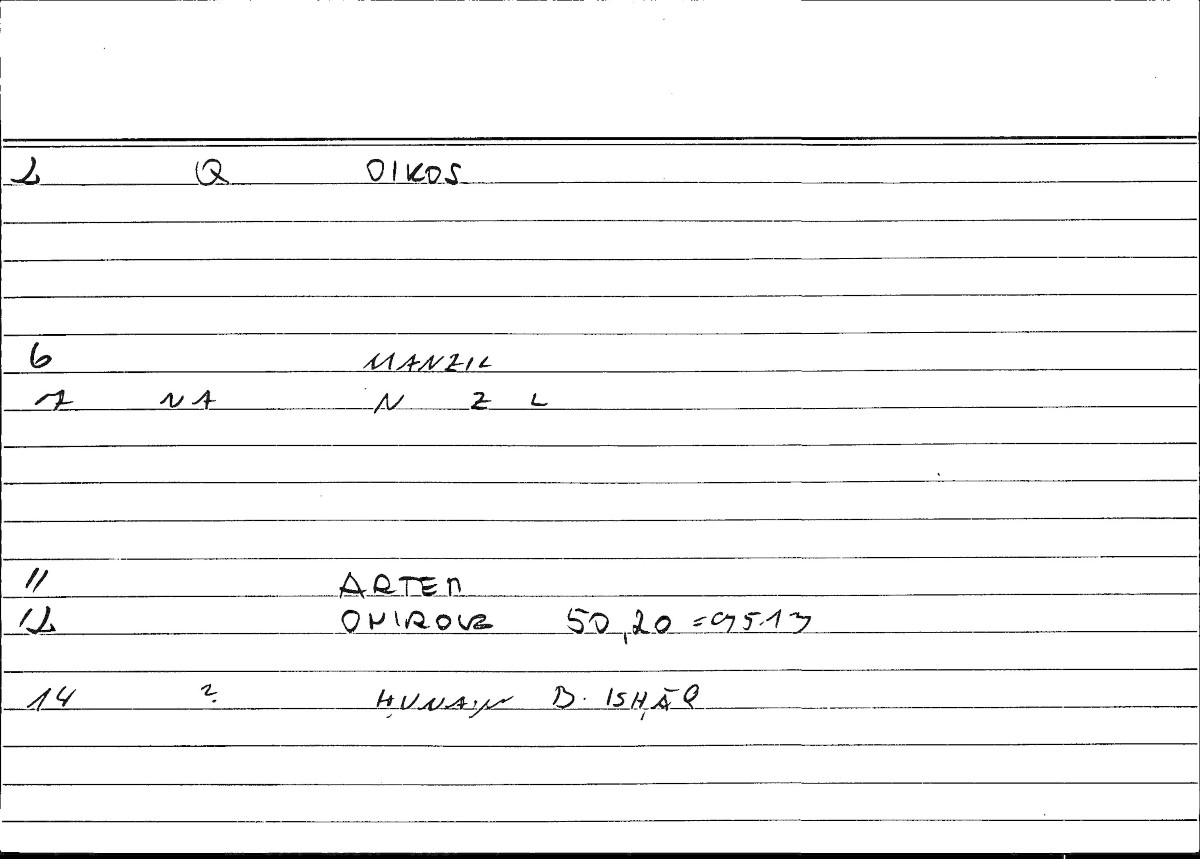 2 Q OIKOS
6 MANZIL
7 NA N Z L
11 ARTEM
12 ONIROCR 50,20 =
14 ? ḤUNAIN B. ISḤĀQ